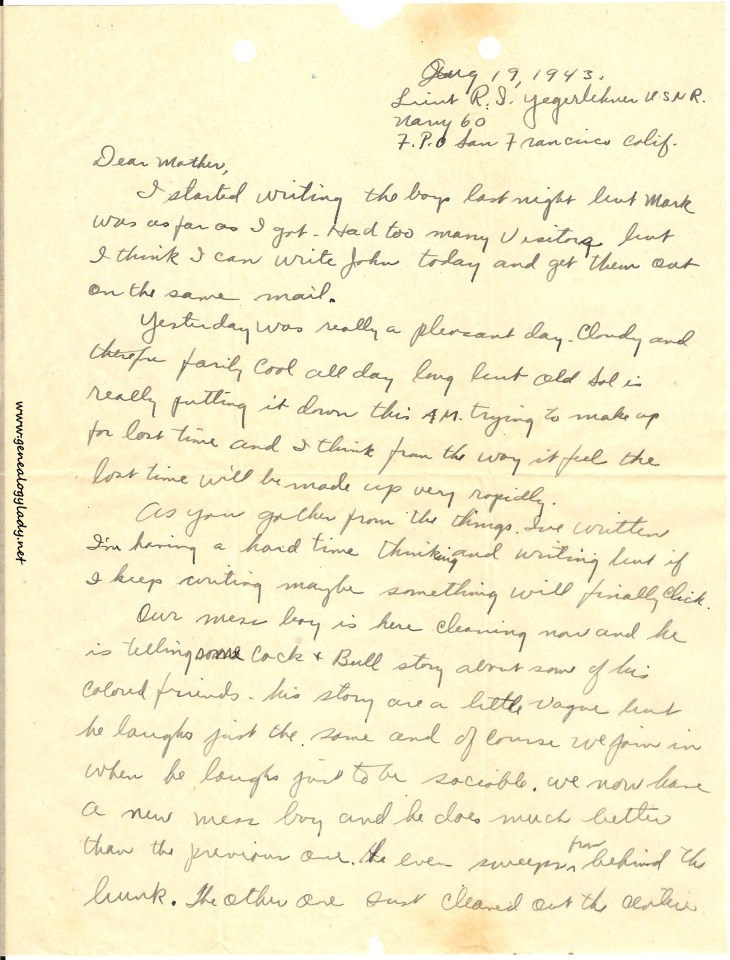 Aug 19, 1943.
Lieut R. I. Yegerlehner USNR.
Navy 60
F.P.O San Francisco Calif.
Dear Mother,
I started writing the boys last night but Mark
was as far as I got - Had too many Visitors but
I think I can write John today and get them out
on the same mail.
Yesterday was really a pleasant day - Cloudy and
therefre farily Cool all day long but old Sol is
really putting it down this A.M. trying to make up
for lost time and I think from the way it feel the
lost time will be made up very rapidly.
As you gather from the things I've written
I'm having a hard time thinking and writing but if
I keep writing maybe something will finally Click.
Our mess boy is here cleaning now and he
is telling some Cock & Bull story about some of his
Colored friends - his story are a little vague but
he laughs just the same and of course we join in
when he laughs just to be sociable. we now have
a new mess boy and he does much better
than the previous one. He even sweeps from behind the
bunk. The other one just cleaned out the center
www.genealogylady.net